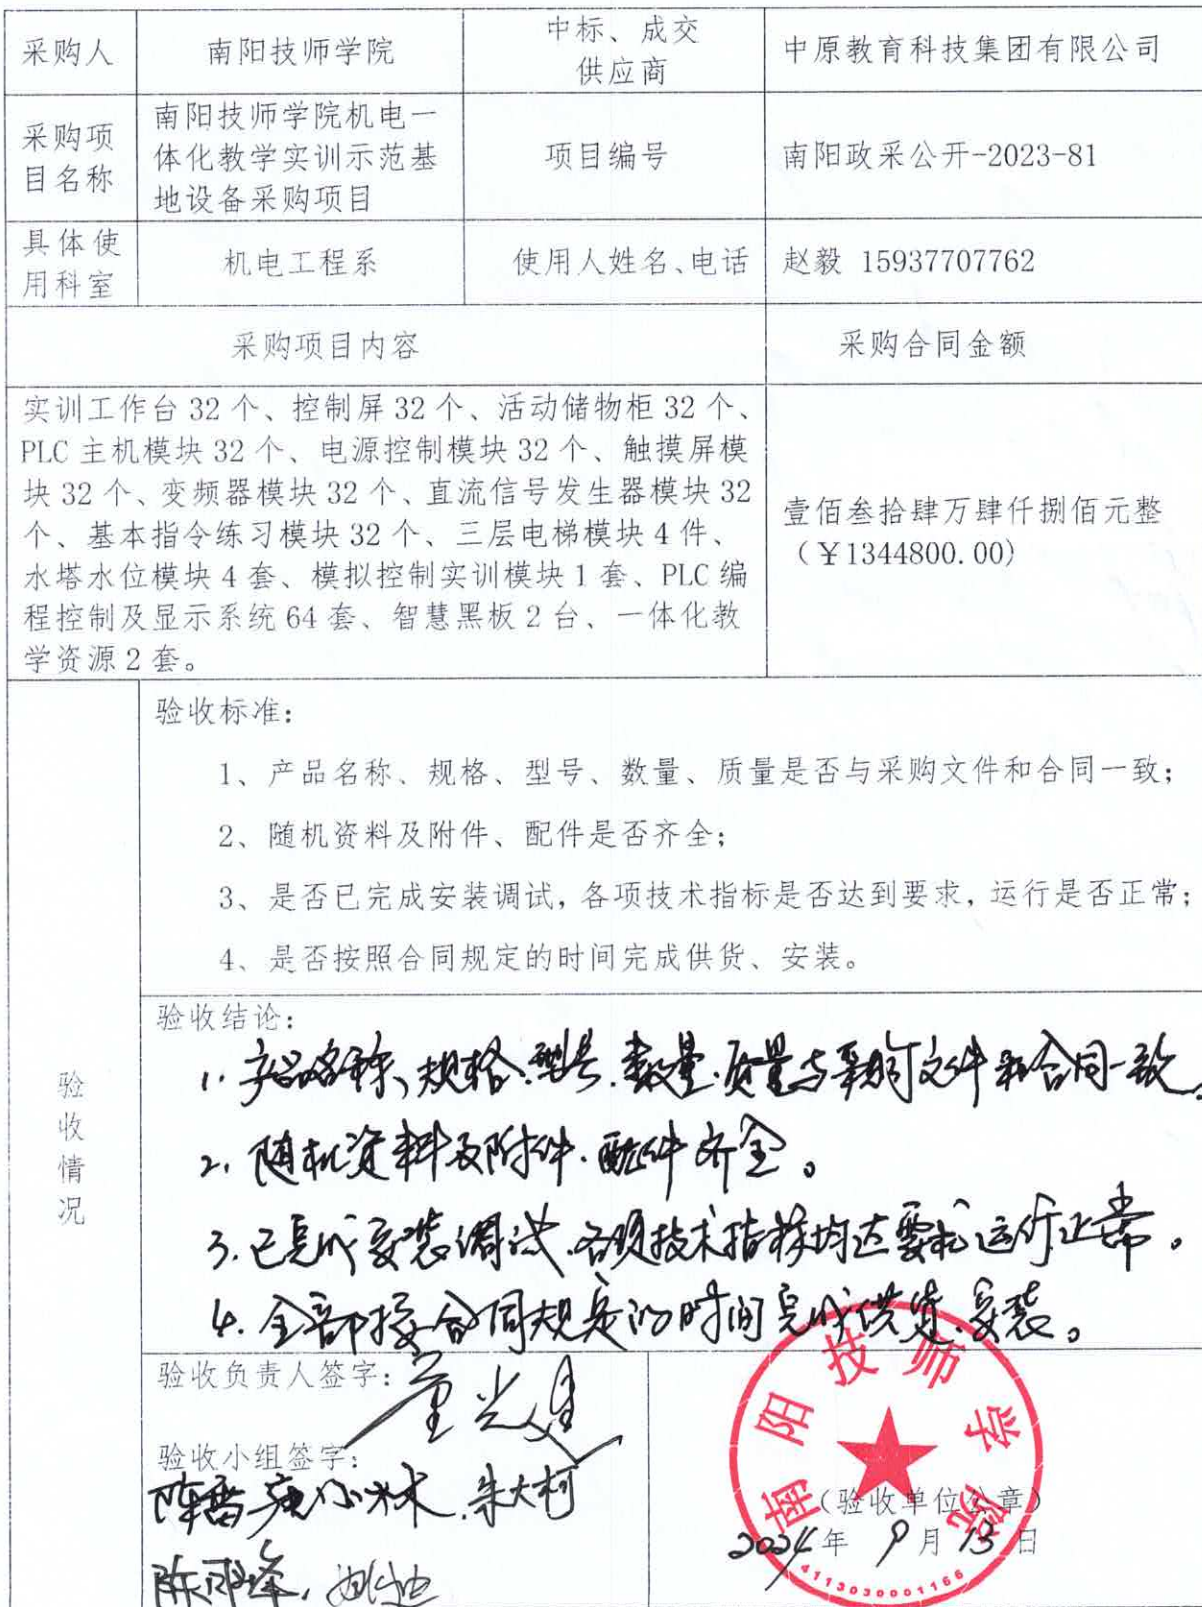 采购人
南阳技师学院
中标、成交
供应商
中原教育科技集团有限公司
采购项
目名称
南阳技师学院机电一
体化教学实训示范基
地设备采购项目
项目编号
南阳政采公开-2023-81
具体使
用科室
机电工程系
使用人姓名、电话
赵毅 15937707762
采购项目内容
采购合同金额
实训工作台 32 个、控制屏 32 个、活动储物柜 32 个、
PLC 主机模块 32 个、电源控制模块 32 个、触摸屏模
块 32 个、变频器模块 32 个、直流信号发生器模块 32
个、基本指令练习模块 32 个、三层电梯模块 4 件、
水塔水位模块 4 套、模拟控制实训模块 1 套、PLC 编
程控制及显示系统 64 套、智慧黑板 2 台、一体化教
学资源 2 套。
壹佰叁拾肆万肆仟捌佰元整
（¥1344800.00）
验收情况
验收标准：
1、产品名称、规格、型号、数量、质量是否与采购文件和合同一致；
2、随机资料及附件、配件是否齐全；
3、是否已完成安装调试，各项技术指标是否达到要求，运行是否正常；
4、是否按照合同规定的时间完成供货、安装。
验收结论：
1. 产品名称、规格、型号、数量、质量与采购文件和合同一致。
2. 随机资料及附件、配件齐全。
3. 已完成安装调试、各项技术指标均达要求运行正常。
4. 全部按合同规定的时间完成供货、安装。
验收负责人签字：
验收小组签字：
朱大柯
南阳技师学院
（验收单位公章）
2024年 9月 13日
4113030001166